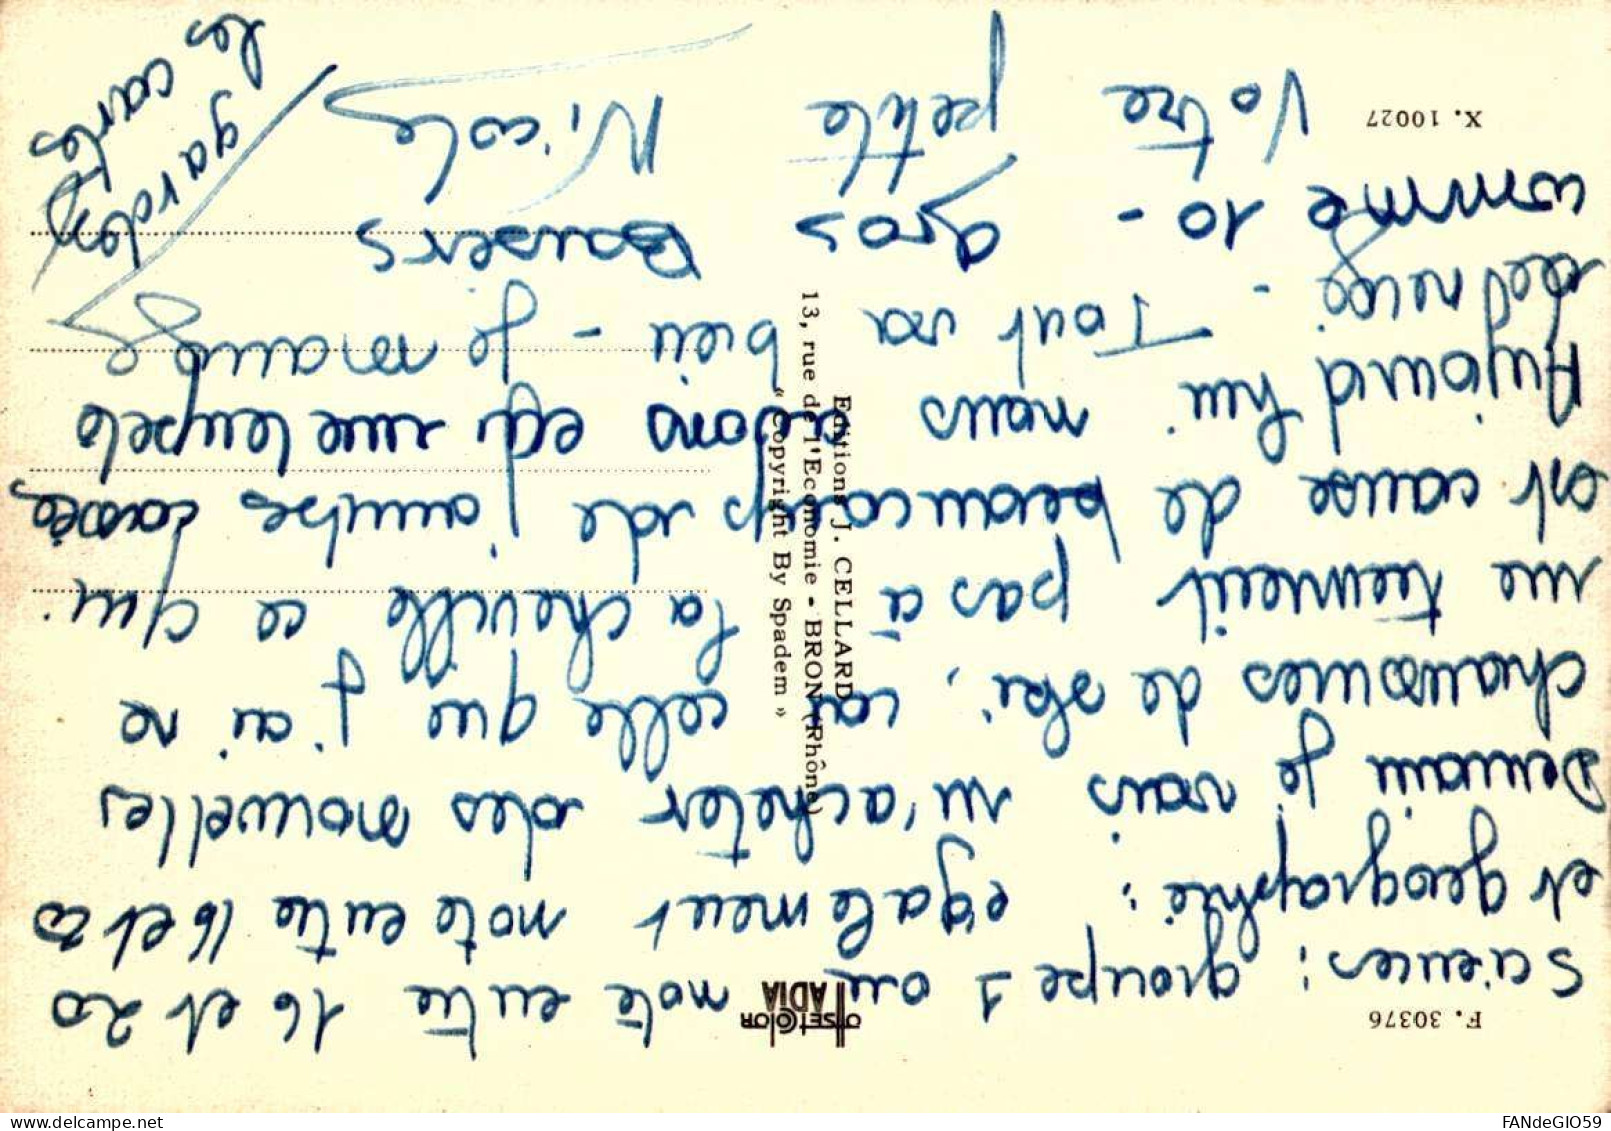 Sciences : groupe 1 ou note entre 16 et 20
et geographie : egalement note entre 16 et 20
Demain je vais m'acheter des nouvelles
chaussures de ski, car celle que j'ai ne
me tiennent pas à la cheville ce qui
est cause de beaucoups de jambes cassées
Aujourd'hui nous avons eu une tempete
de neige - Tout va bien - je mange
comme 10 - Gros Baisers
Votre petite Nicole
gardez
les cartes
F. 30376
X. 10027
OFFSETCOLOR
ADIA
Editions J. CELLARD
13, rue de l'Economie - BRON (Rhône)
« Copyright By Spadem »
FANdeGIO59